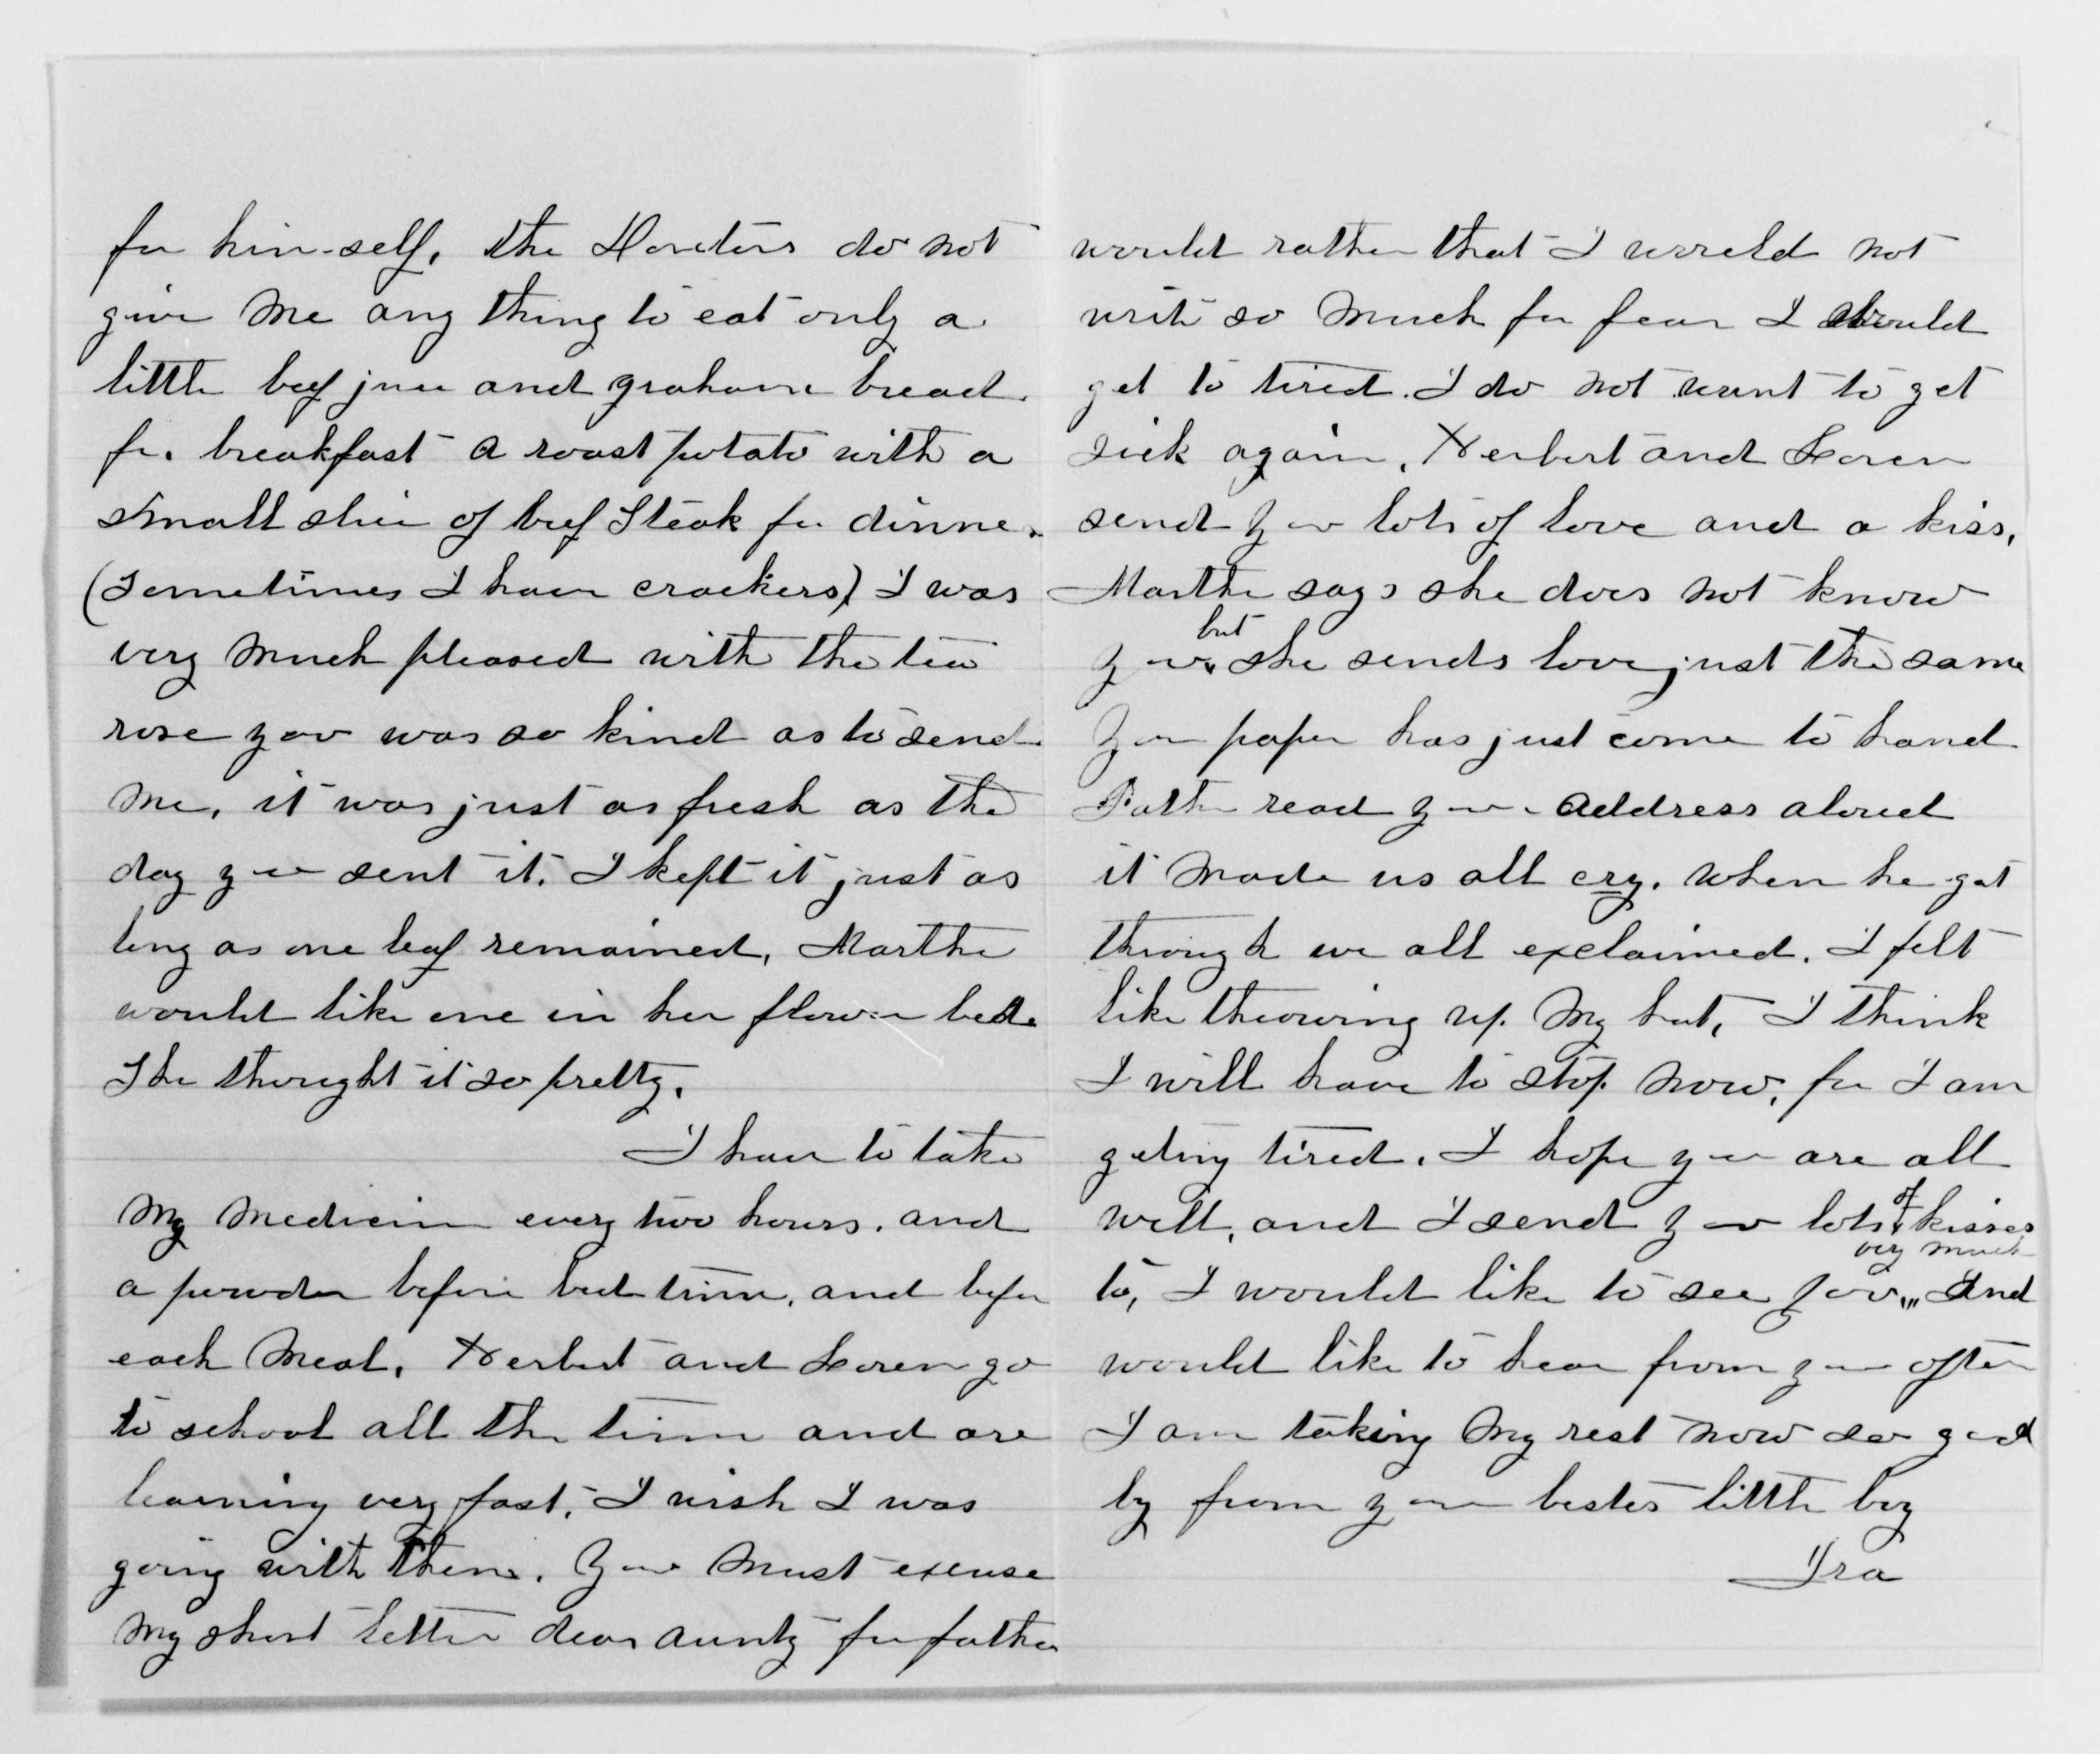 for him-self, the Doctors do not
give me any thing to eat only a
little beef juice and graham bread
for breakfast a roast potato with a
small slice of beef Steak for dinner.
(Sometimes I have crackers) I was
very much pleased with the tea
rose you was so kind as to send
me, it was just as fresh as the
day you sent it. I kept it just as
long as one leaf remained, Martha
would like one in her flower bed.
She thought it so pretty.
I have to take
my medicine every two hours. and
a powder before bed time, and before
each meal. Herbert and Loren go
to school all the time and are
learning very fast, I wish I was
going with them. You must excuse
my short letter dear aunty for father
would rather that I would not
write so much for fear I should
get to tired. I do not want to get
sick again. Herbert and Loren
send you lots of love and a kiss,
Martha says she does not know
you, but she sends love just the same
Your paper has just come to hand
Father read your address aloud
it made us all cry. when he got
through we all exclaimed. I felt
like throwing up my hat, I think
I will have to stop now, for I am
geting tired. I hope you are all
well, and I send you lots of kisses
to, I would like to see you very much and
would like to hear from you often
I am taking my rest now so good
by from your bestes little boy
Ira